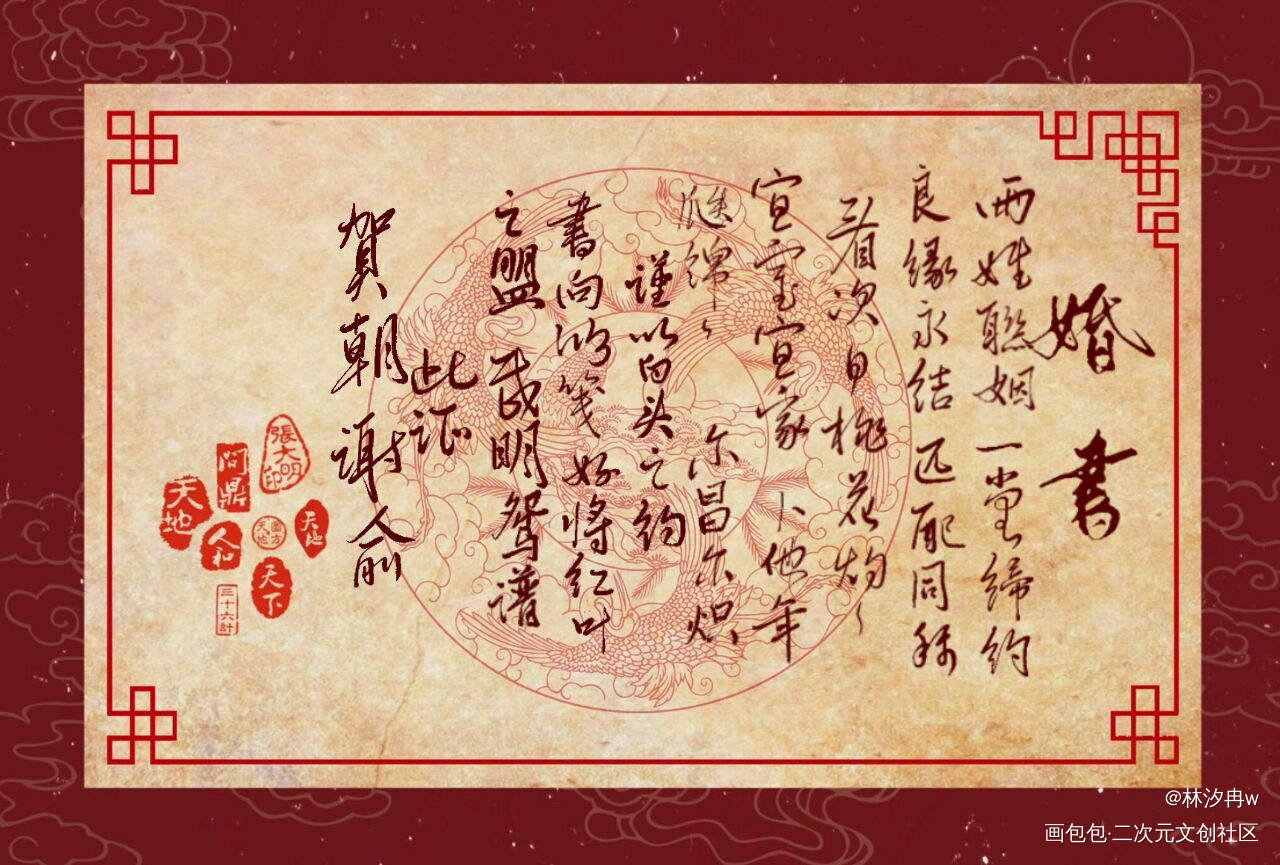 婚書
兩姓聯姻 一堂締约
良缘永结 匹配同称
看此日桃花灼灼
宜室宜家 卜他年
瓜瓞绵绵 尔昌尔炽
謹以白头之约
書向鸿笺 好将红叶
之盟 载明鸳谱
此证
賀朝 谢俞
張大明印
問鼎
天地
人和
天地
天下
三十六計
@林汐冉w
画包包·二次元文创社区